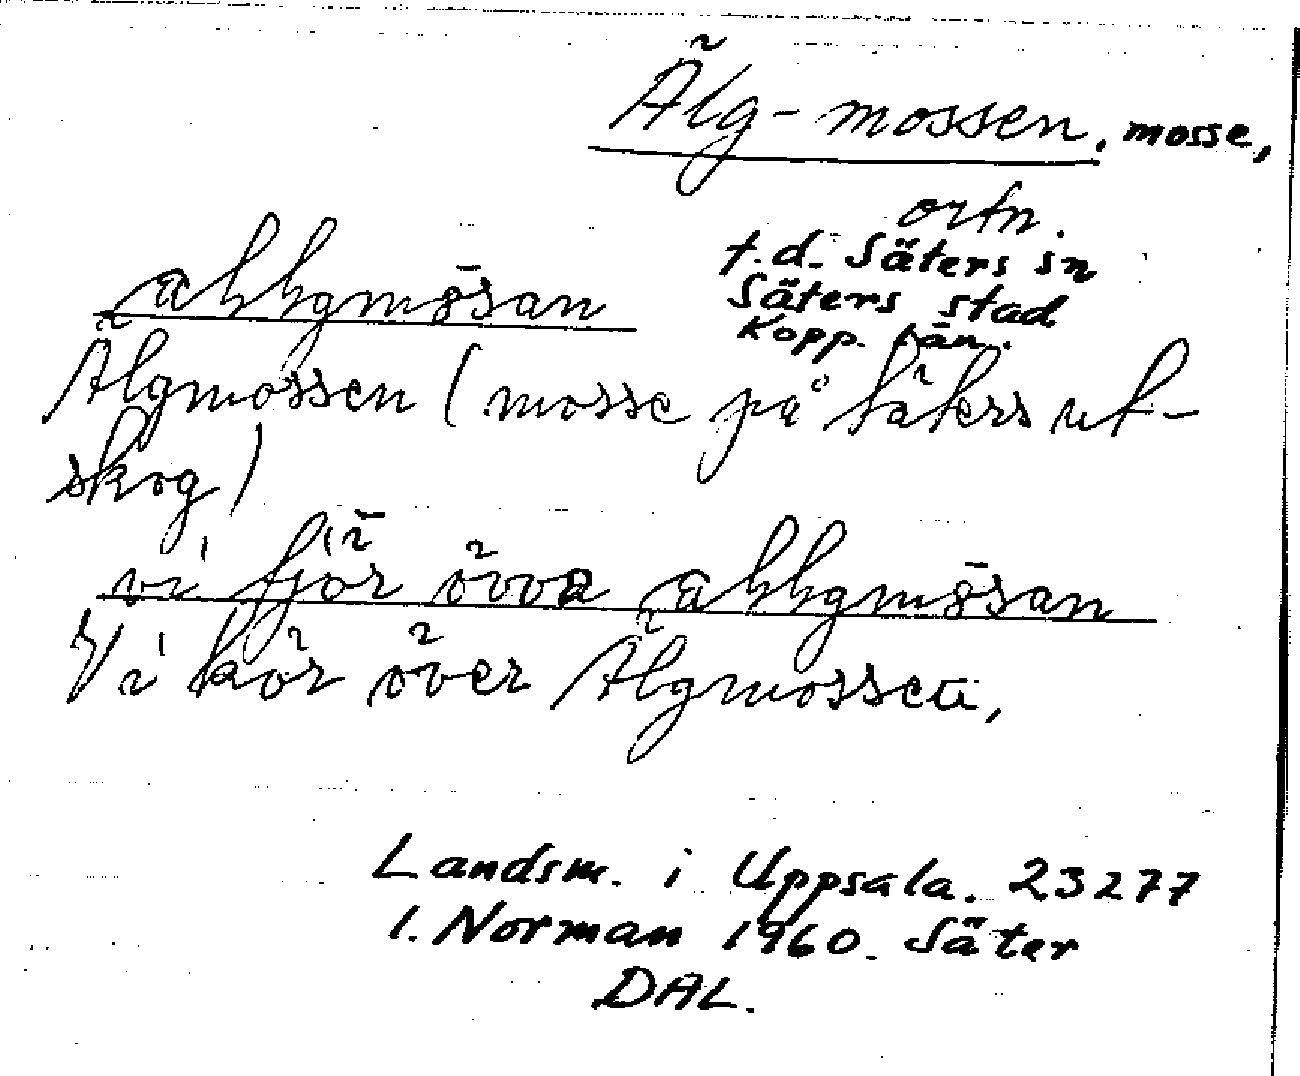 Älg-mossen, mosse,
ortn.
f.d. Säters sn
Säters stad
Kopp. län.
ällgmōsan
Älgmossen (mosse på Säters ut-
skog)
vi tjör övva ällgmōsan
Vi kör över Älgmossen,
Landsm. i Uppsala. 23277
I. Norman 1960. Säter
DAL.